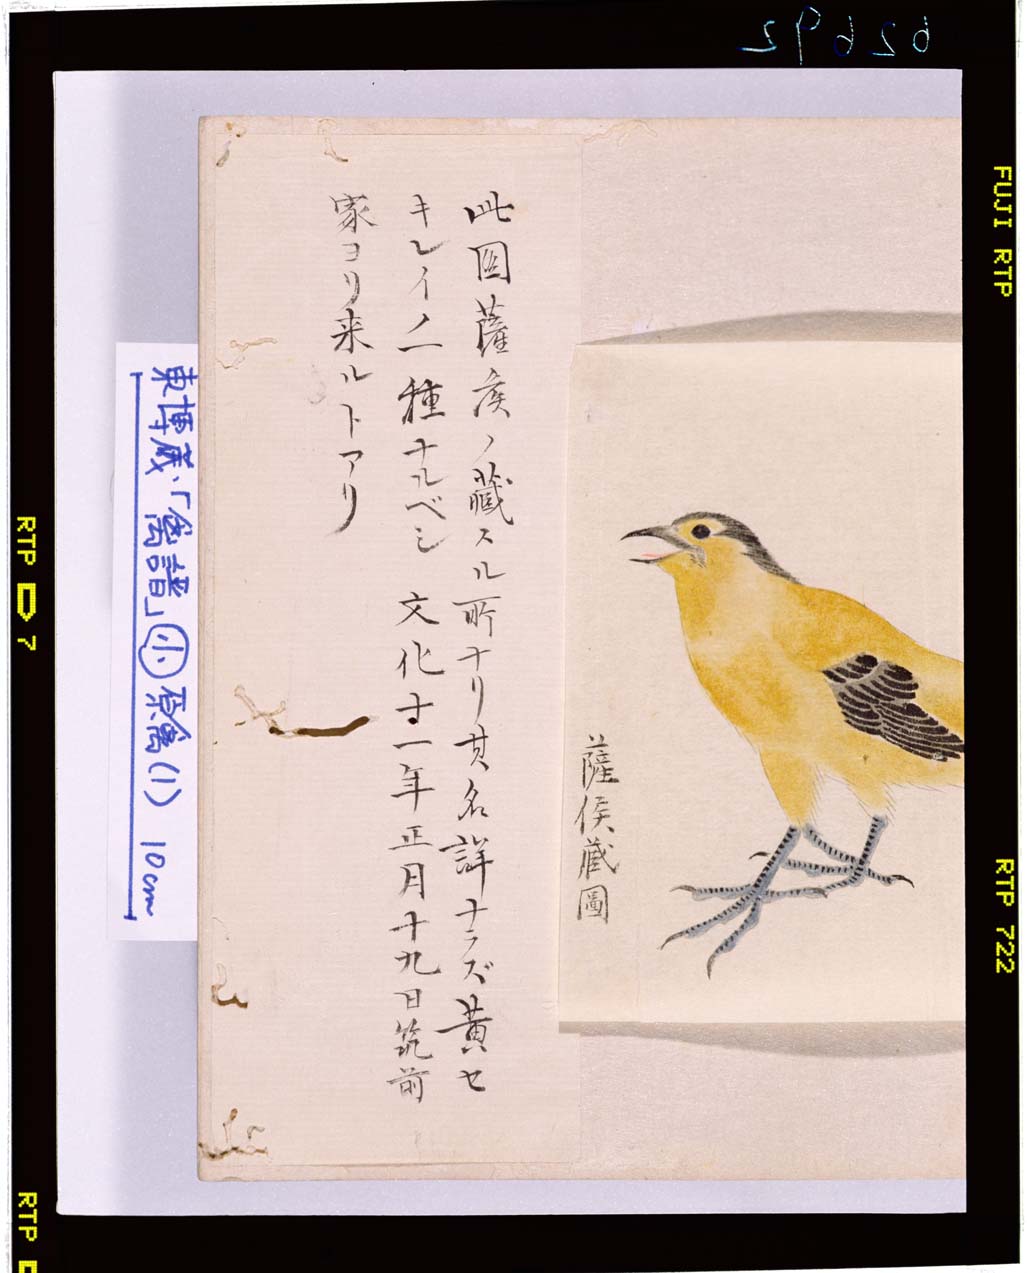 62692
FUJI RTP
RTP 722
RTP 7
RTP
此図薩侯ノ蔵スル所ナリ其名詳ナラズ黄セ
キレイノ一種ナルベシ 文化十一年正月十九日筑前
家ヨリ来ルトアリ
薩侯蔵圖
東博蔵、「禽譜」小 原禽(1) 10cm